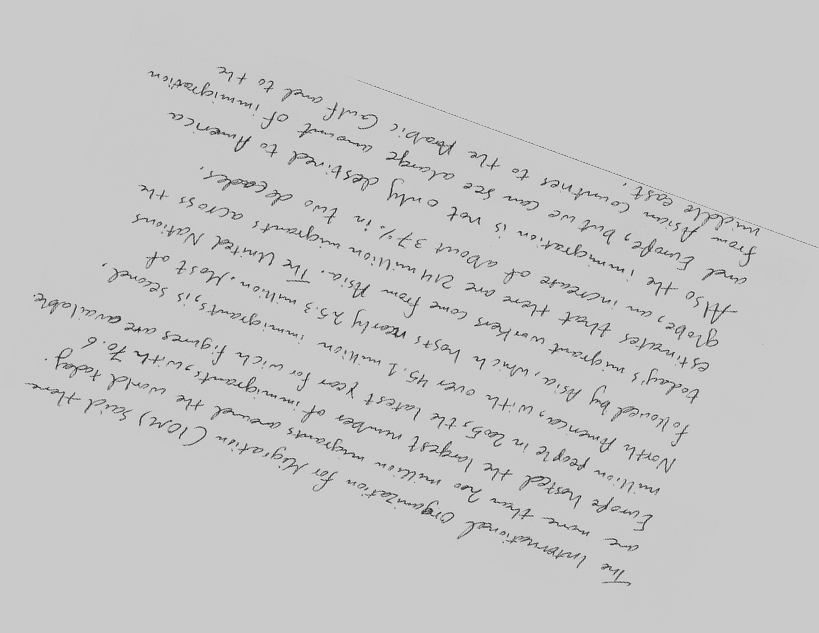 The International Organization for Migration (IOM) said there
are more then 200 million migrants around the world today.
Europe hosted the largest number of immigrants, with 70.6
million people in 2005, the latest year for wich figures are available
North America, with over 45.1 million immigrants, is second.
followed by Asia, which hosts nearly 25.3 million. Most of
today's migrant workers come from Asia. The United Nations
estimates that there are 214 million migrants across the
globe, an increase of about 37% in two decades.
Also the immigration is not only destined to America
and Europe, but we can see alarge amount of immigration
from Asian countries to the Arabic Gulf and to the
middle east.